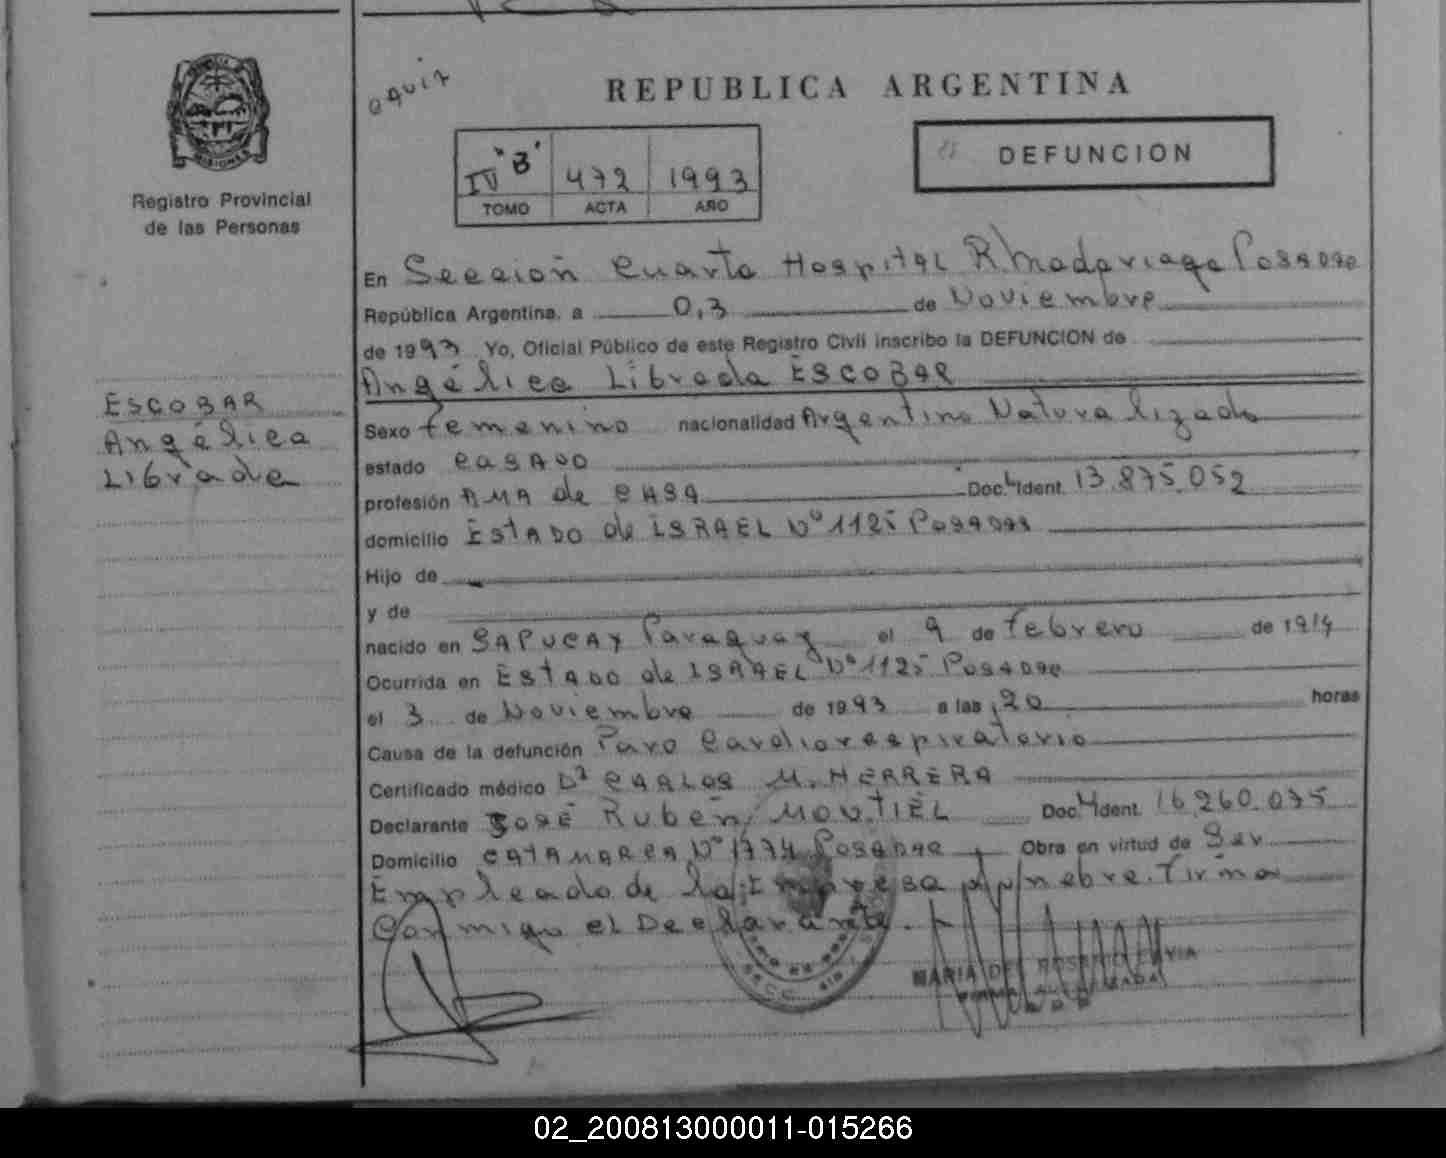 REPUBLICA ARGENTINA
DEFUNCION
MISIONES
Registro Provincial
de las Personas
IV "B" 472 1993
TOMO ACTA AÑO
ESCOBAR
Angélica
Librada
En Sección Cuarta Hospital R. Madariaga Posadas
República Argentina, a 0,3 de Noviembre
de 1993 Yo, Oficial Público de este Registro Civil inscribo la DEFUNCION de
Angélica Librada ESCOBAR
Sexo femenino nacionalidad Argentina Naturalizada
estado casado
profesión AMA de casa Doc. Ident. 13.875.052
domicilio Estado de ISRAEL Nº 1125 Posadas
Hijo de
y de
nacido en SAPUCAY Paraguay el 9 de Febrero de 1914
Ocurrida en Estado de ISRAEL Nº 1125 Posadas
el 3 de Noviembre de 1993 a las 20 horas
Causa de la defunción Paro Cardiorespiratorio
Certificado médico Dr CARLOS M. HERRERA
Declarante José Rubén MONTIEL Doc. Ident. 16.260.075
Domicilio CATAMARCA Nº 1774 Posadas Obra en virtud de Ser
Empleado de la Empresa Funebre. Firma
Conmigo el Declarante.
MARIA DEL ROSARIO
02_200813000011-015266